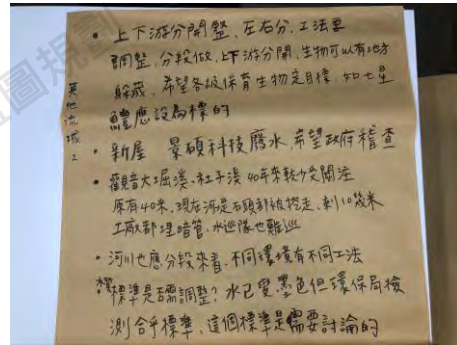 • 上下游分開整、左右分、工法要
調整、分段做、上下游分開、生物可以有地方
躲藏、希望各級保育生物定目標、如七星
鱧應設為標的
• 新屋 景碩科技廢水、希望政府稽查
• 觀音大堀溪、社子溪 40年來較少受關注
原有40米、現在河是石頭都被挖走、剩10幾米
工廠都埋暗管、水巡隊也難巡
• 河川也應分段來看、不同環境有不同工法
標準是否需調整?水已變墨色但環保局檢
測合乎標準、這個標準是需要討論的
其他流域2